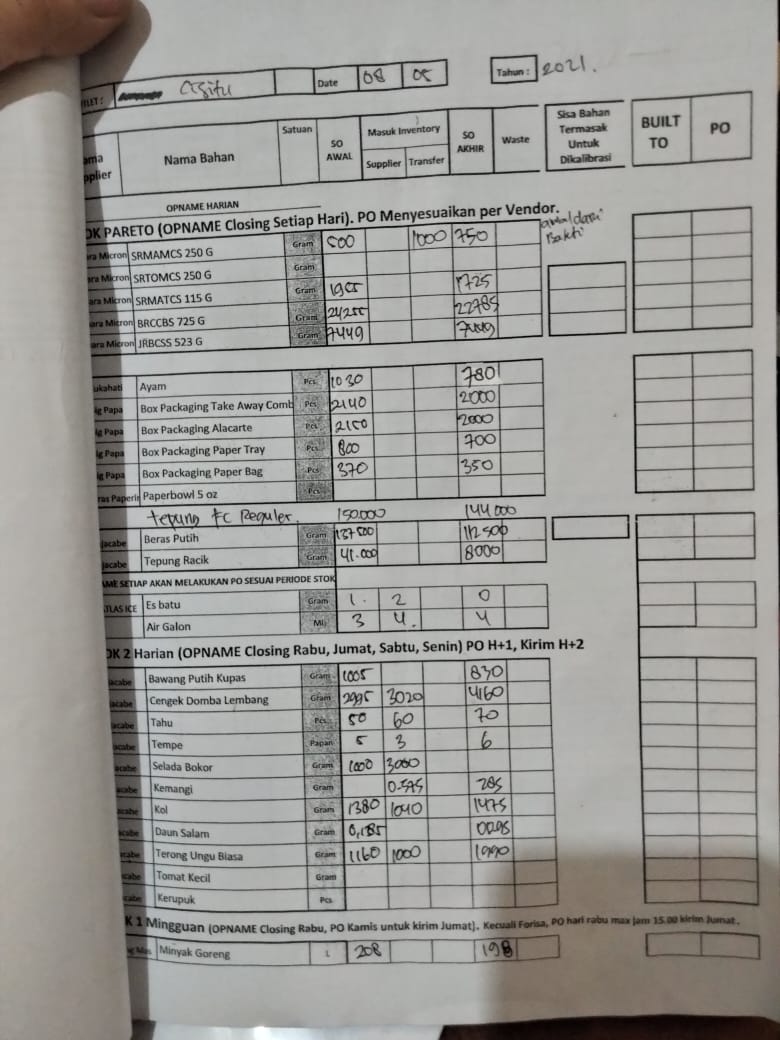 TLET : Cisitu Date 08 05 Tahun : 2021.
ama pplier Nama Bahan Satuan SO AWAL Masuk Inventory Supplier Transfer SO AKHIR Waste Sisa Bahan Termasak Untuk Dikalibrasi BUILT TO PO
OPNAME HARIAN
OK PARETO (OPNAME Closing Setiap Hari). PO Menyesuaikan per Vendor.
ara Micron SRMAMCS 250 G Gram 500 1000 750 dari Bakti
ara Micron SRTOMCS 250 G Gram
ara Micron SRMATCS 115 G Gram 1725
ara Micron BRCCBS 725 G Gram 22785
ara Micron JRBCSS 523 G Gram 7449 7449
ukahati Ayam Pcs 1030 780
ig Papa Box Packaging Take Away Comb Pcs 2140 2000
ig Papa Box Packaging Alacarte Pcs 2150 2000
ig Papa Box Packaging Paper Tray Pcs 800 700
ig Papa Box Packaging Paper Bag Pcs 370 350
ras Paperin Paperbowl 5 oz Pcs
tepung FC Reguler. 150.000 144.000
jacabe Beras Putih Gram 137500 112500
jacabe Tepung Racik Gram 41.000 8000
AME SETIAP AKAN MELAKUKAN PO SESUAI PERIODE STOK
TLAS ICE Es batu Gram 1. 2 0
Air Galon Mli 3 4. 4
OK 2 Harian (OPNAME Closing Rabu, Jumat, Sabtu, Senin) PO H+1, Kirim H+2
jacabe Bawang Putih Kupas Gram 1005 830
jacabe Cengek Domba Lembang Gram 2995 3020 4160
jacabe Tahu Pcs 50 60 70
jacabe Tempe Papan 5 3 6
acabe Selada Bokor Gram 1000 3000
acabe Kemangi Gram 0.575 285
acabe Kol Gram 1380 1040 1475
acabe Daun Salam Gram 0,185
acabe Terong Ungu Biasa Gram 1160 1000 1990
cabe Tomat Kecil Gram
cabe Kerupuk Pcs
K 1 Mingguan (OPNAME Closing Rabu, PO Kamis untuk kirim Jumat). Kecuali Forisa, PO hari rabu max jam 15.00 kirim Jumat.
g Mas Minyak Goreng L 208 198